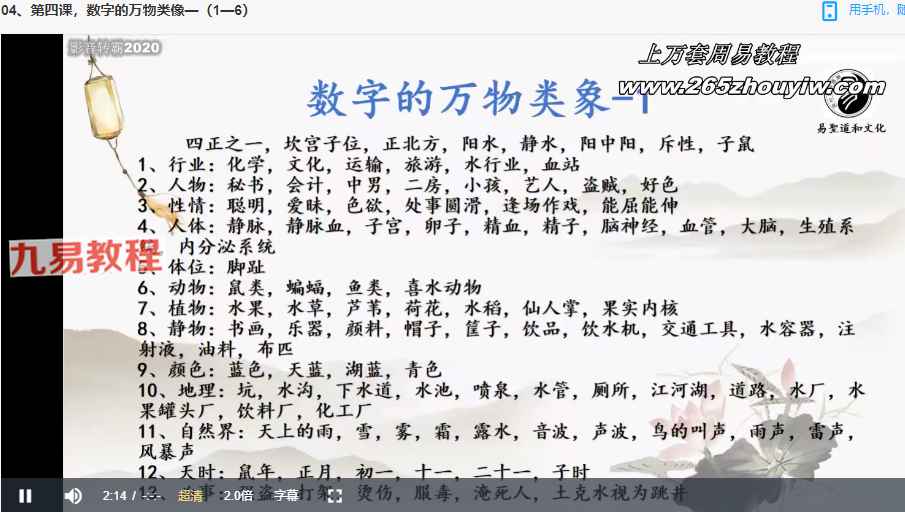 04、第四课，数字的万物类像一（1—6）
用手机，随
影音转霸2020
上万套周易教程
www.265zhouyiw.com
数字的万物类象-1
易聖道和文化
四正之一，坎宫子位，正北方，阳水，静水，阳中阳，斥性，子鼠
1、行业：化学，文化，运输，旅游，水行业，血站
2、人物：秘书，会计，中男，二房，小孩，艺人，盗贼，好色
3、性情：聪明，爱昧，色欲，处事圆滑，逢场作戏，能屈能伸
4、人体：静脉，静脉血，子宫，卵子，精血，精子，脑神经，血管，大脑，生殖系
内分泌系统
九易教程
5、体位：脚趾
6、动物：鼠类，蝙蝠，鱼类，喜水动物
7、植物：水果，水草，芦苇，荷花，水稻，仙人掌，果实内核
8、静物：书画，乐器，颜料，帽子，筐子，饮品，饮水机，交通工具，水容器，注
射液，油料，布匹
9、颜色：蓝色，天蓝，湖蓝，青色
10、地理：坑，水沟，下水道，水池，喷泉，水管，厕所，江河湖，道路，水厂，水
果罐头厂，饮料厂，化工厂
11、自然界：天上的雨，雪，雾，霜，露水，音波，声波，鸟的叫声，雨声，雷声，
风暴声
12、天时：鼠年，正月，初一，十一，二十一，子时
打架，烫伤，服毒，淹死人，土克水视为跳井
2:14 / --:-- 超清 2.0倍 字幕